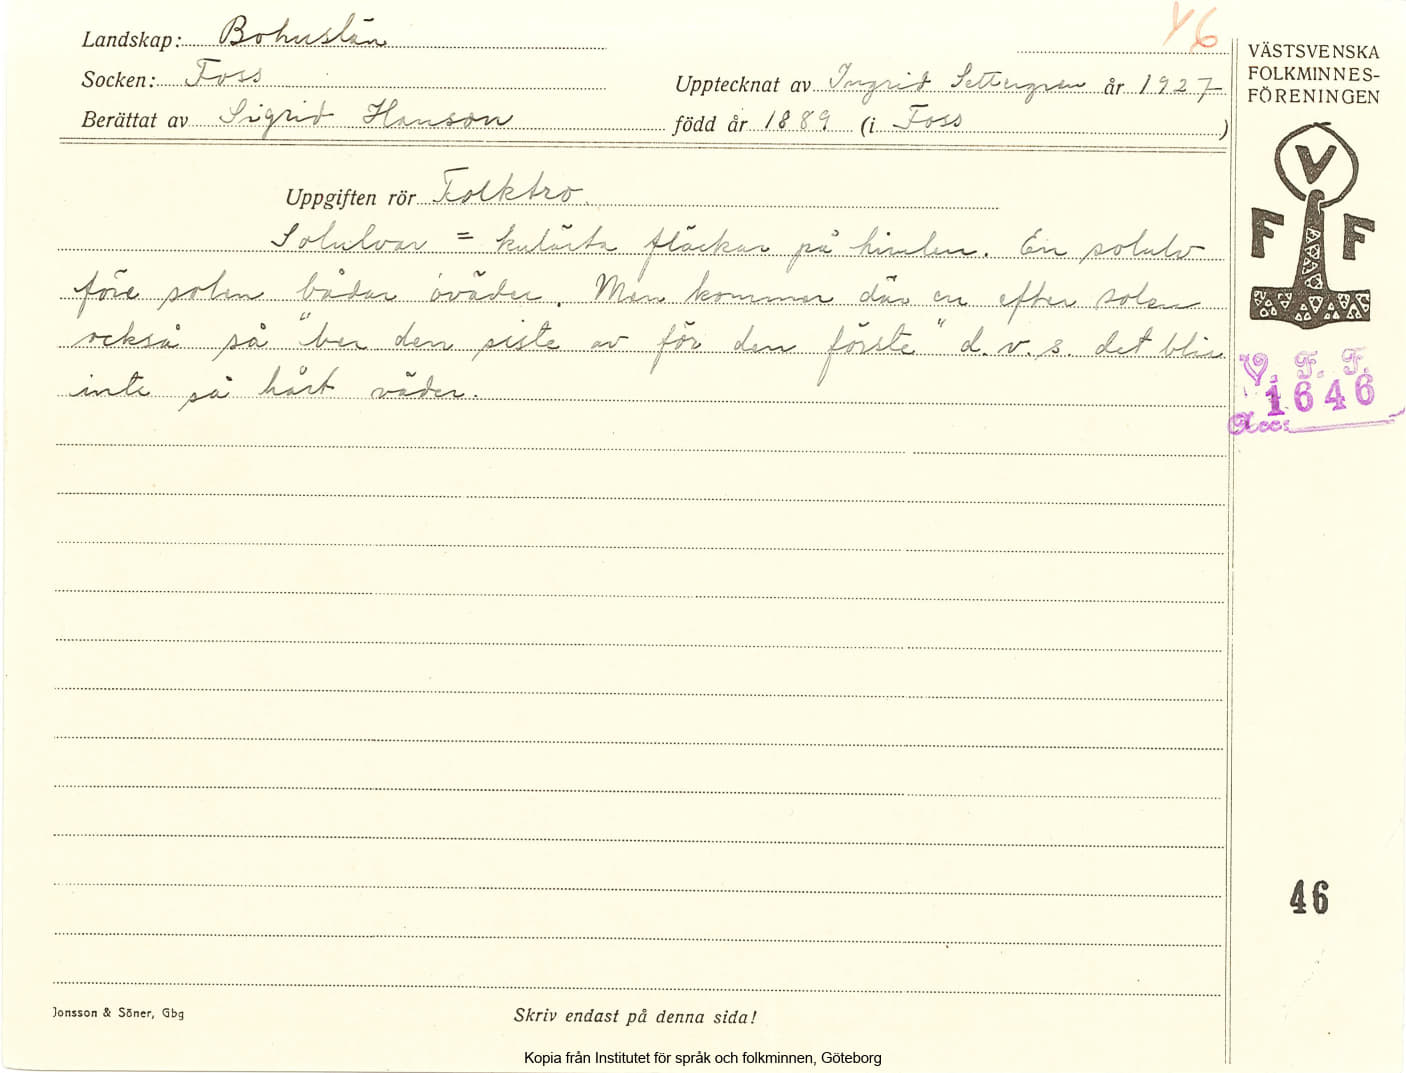 Landskap: Bohuslän
46
Socken: Foss
Upptecknat av Ingrid Settergren år 1927
Berättat av Sigrid Hanson född år 1889 (i Foss )
Uppgiften rör Folktro.
Solulvar = kulörta fläckar på himlen. En solulv
före solen bådar oväder. Men kommer där en efter solen
också så "ber den siste av för den förste" d.v.s. det blir
inte så hårt väder.
VÄSTSVENSKA
FOLKMINNES-
FÖRENINGEN
V
F F
V. F. F.
1646
Acc:
46
Jonsson & Söner, Gbg
Skriv endast på denna sida!
Kopia från Institutet för språk och folkminnen, Göteborg